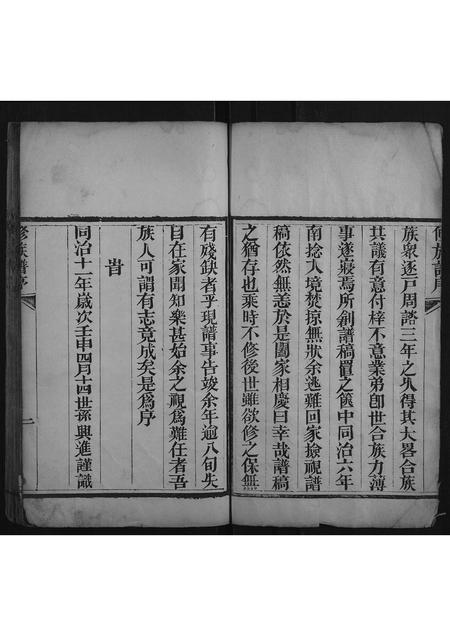 修族譜序
族衆逐戸周諮三年之久得其大畧合族
共議有意付梓不意業弟卽世合族力薄
事遂寢焉所創譜稿置之篋中同治六年
南捻入境焚掠無狀余逃難回家撿視譜
稿依然無恙於是闔家相慶曰幸哉譜稿
之猶存也乘時不修後世雖欲修之保無
有殘缺者乎現譜事告竣余年逾八旬失
目在家聞知樂甚始余之視爲難任者吾
族人可謂有志竟成矣是爲序
旹
同治十一年歲次壬申四月十四世孫興進謹識
修族譜序
二